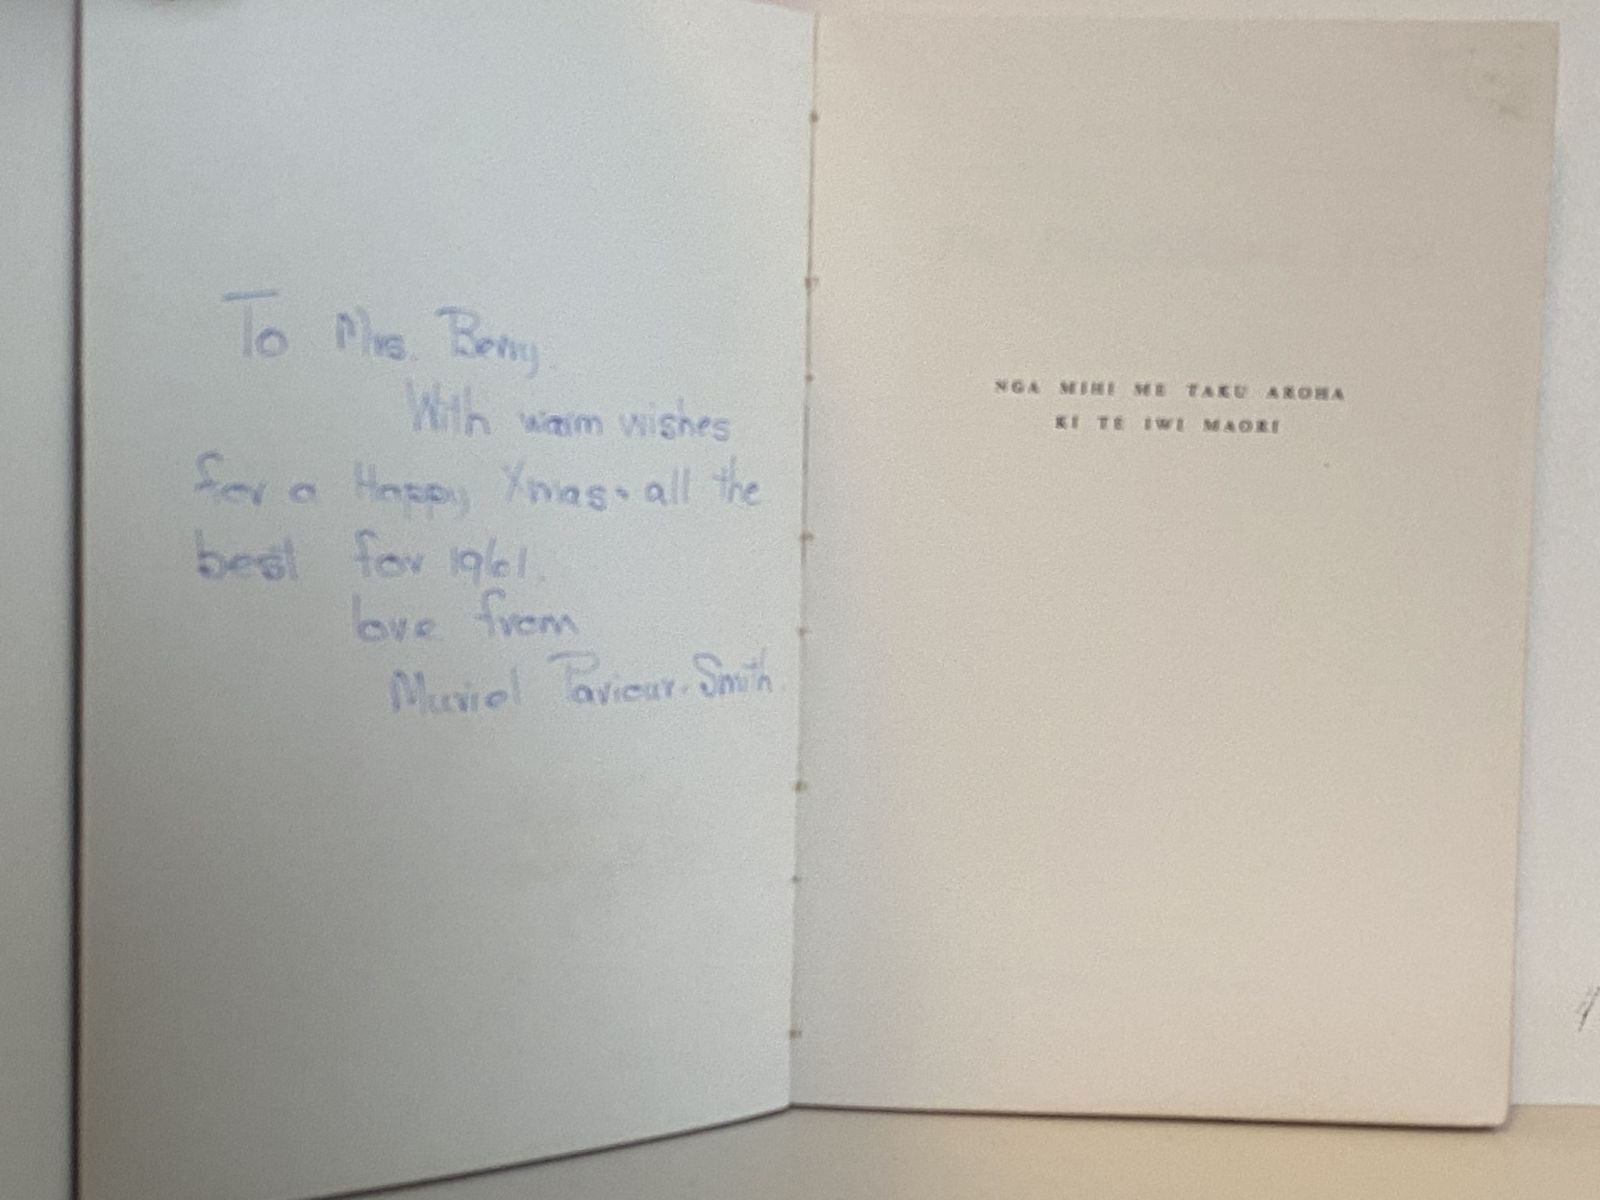 To Mrs. Berry.
With warm wishes
for a Happy Xmas & all the
best for 1961.
love from
Muriel Paviour-Smith
NGA MIHI ME TAKU AROHA
KI TE IWI MAORI